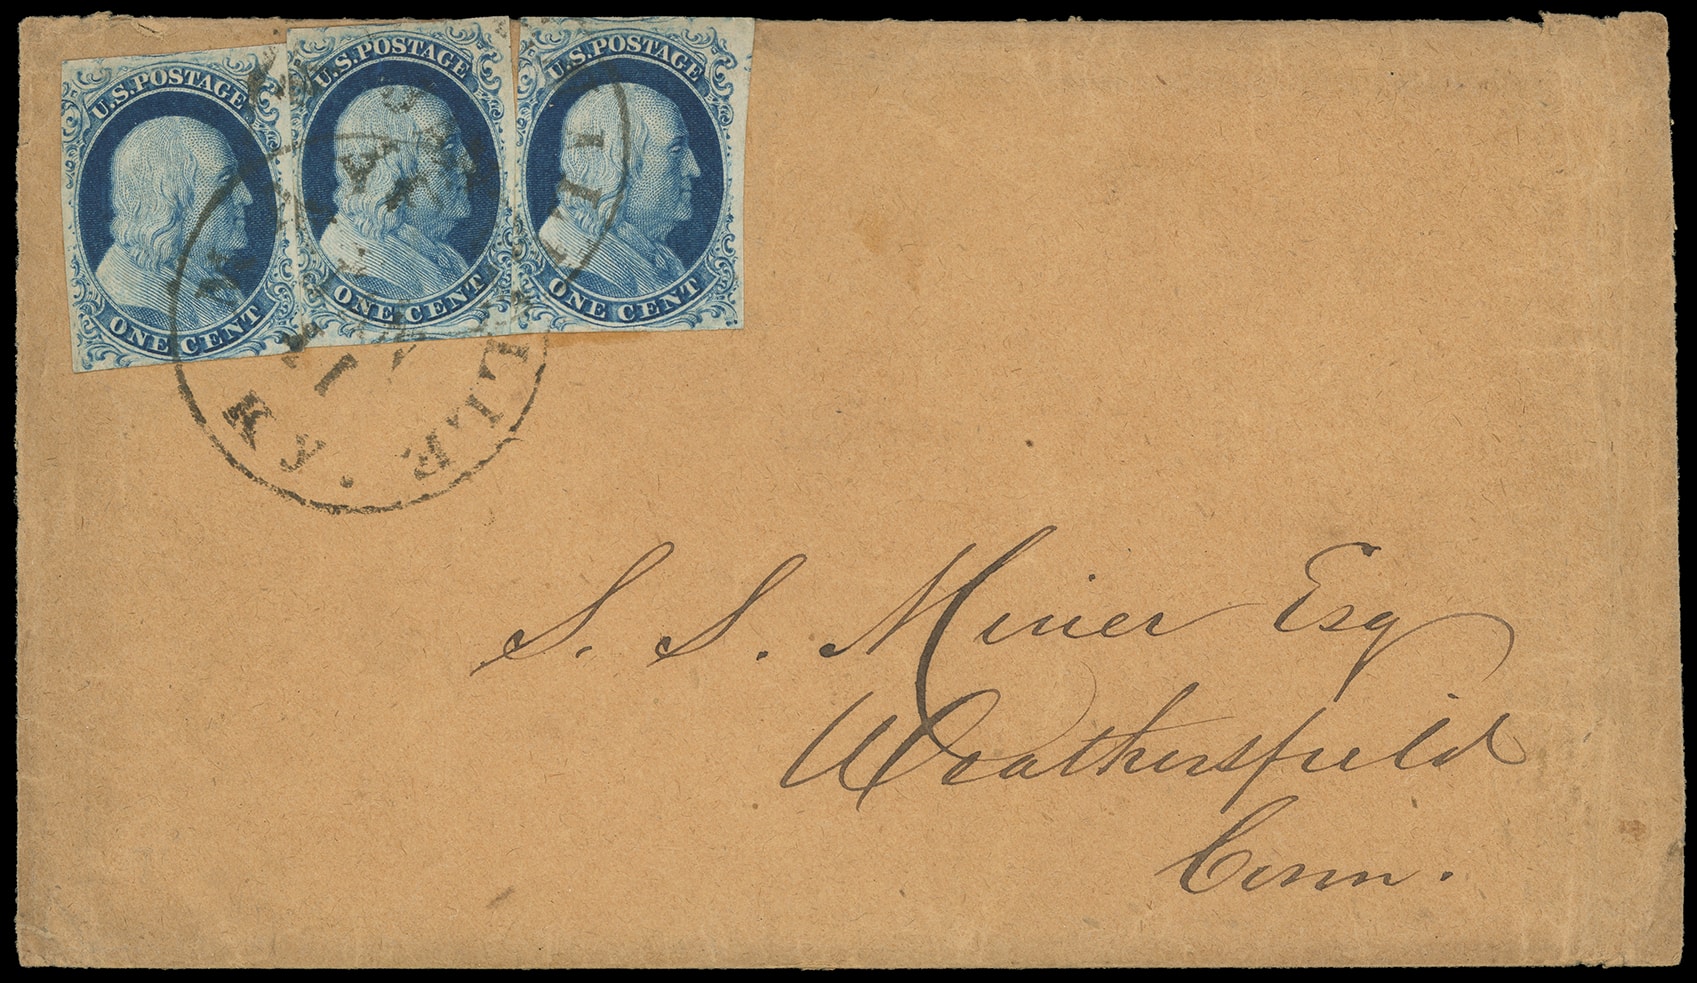 U.S. POSTAGE
ONE CENT
U.S. POSTAGE
ONE CENT
U.S. POSTAGE
ONE CENT
KY.
S. S. Miner Esq
Weathersfield
Conn.